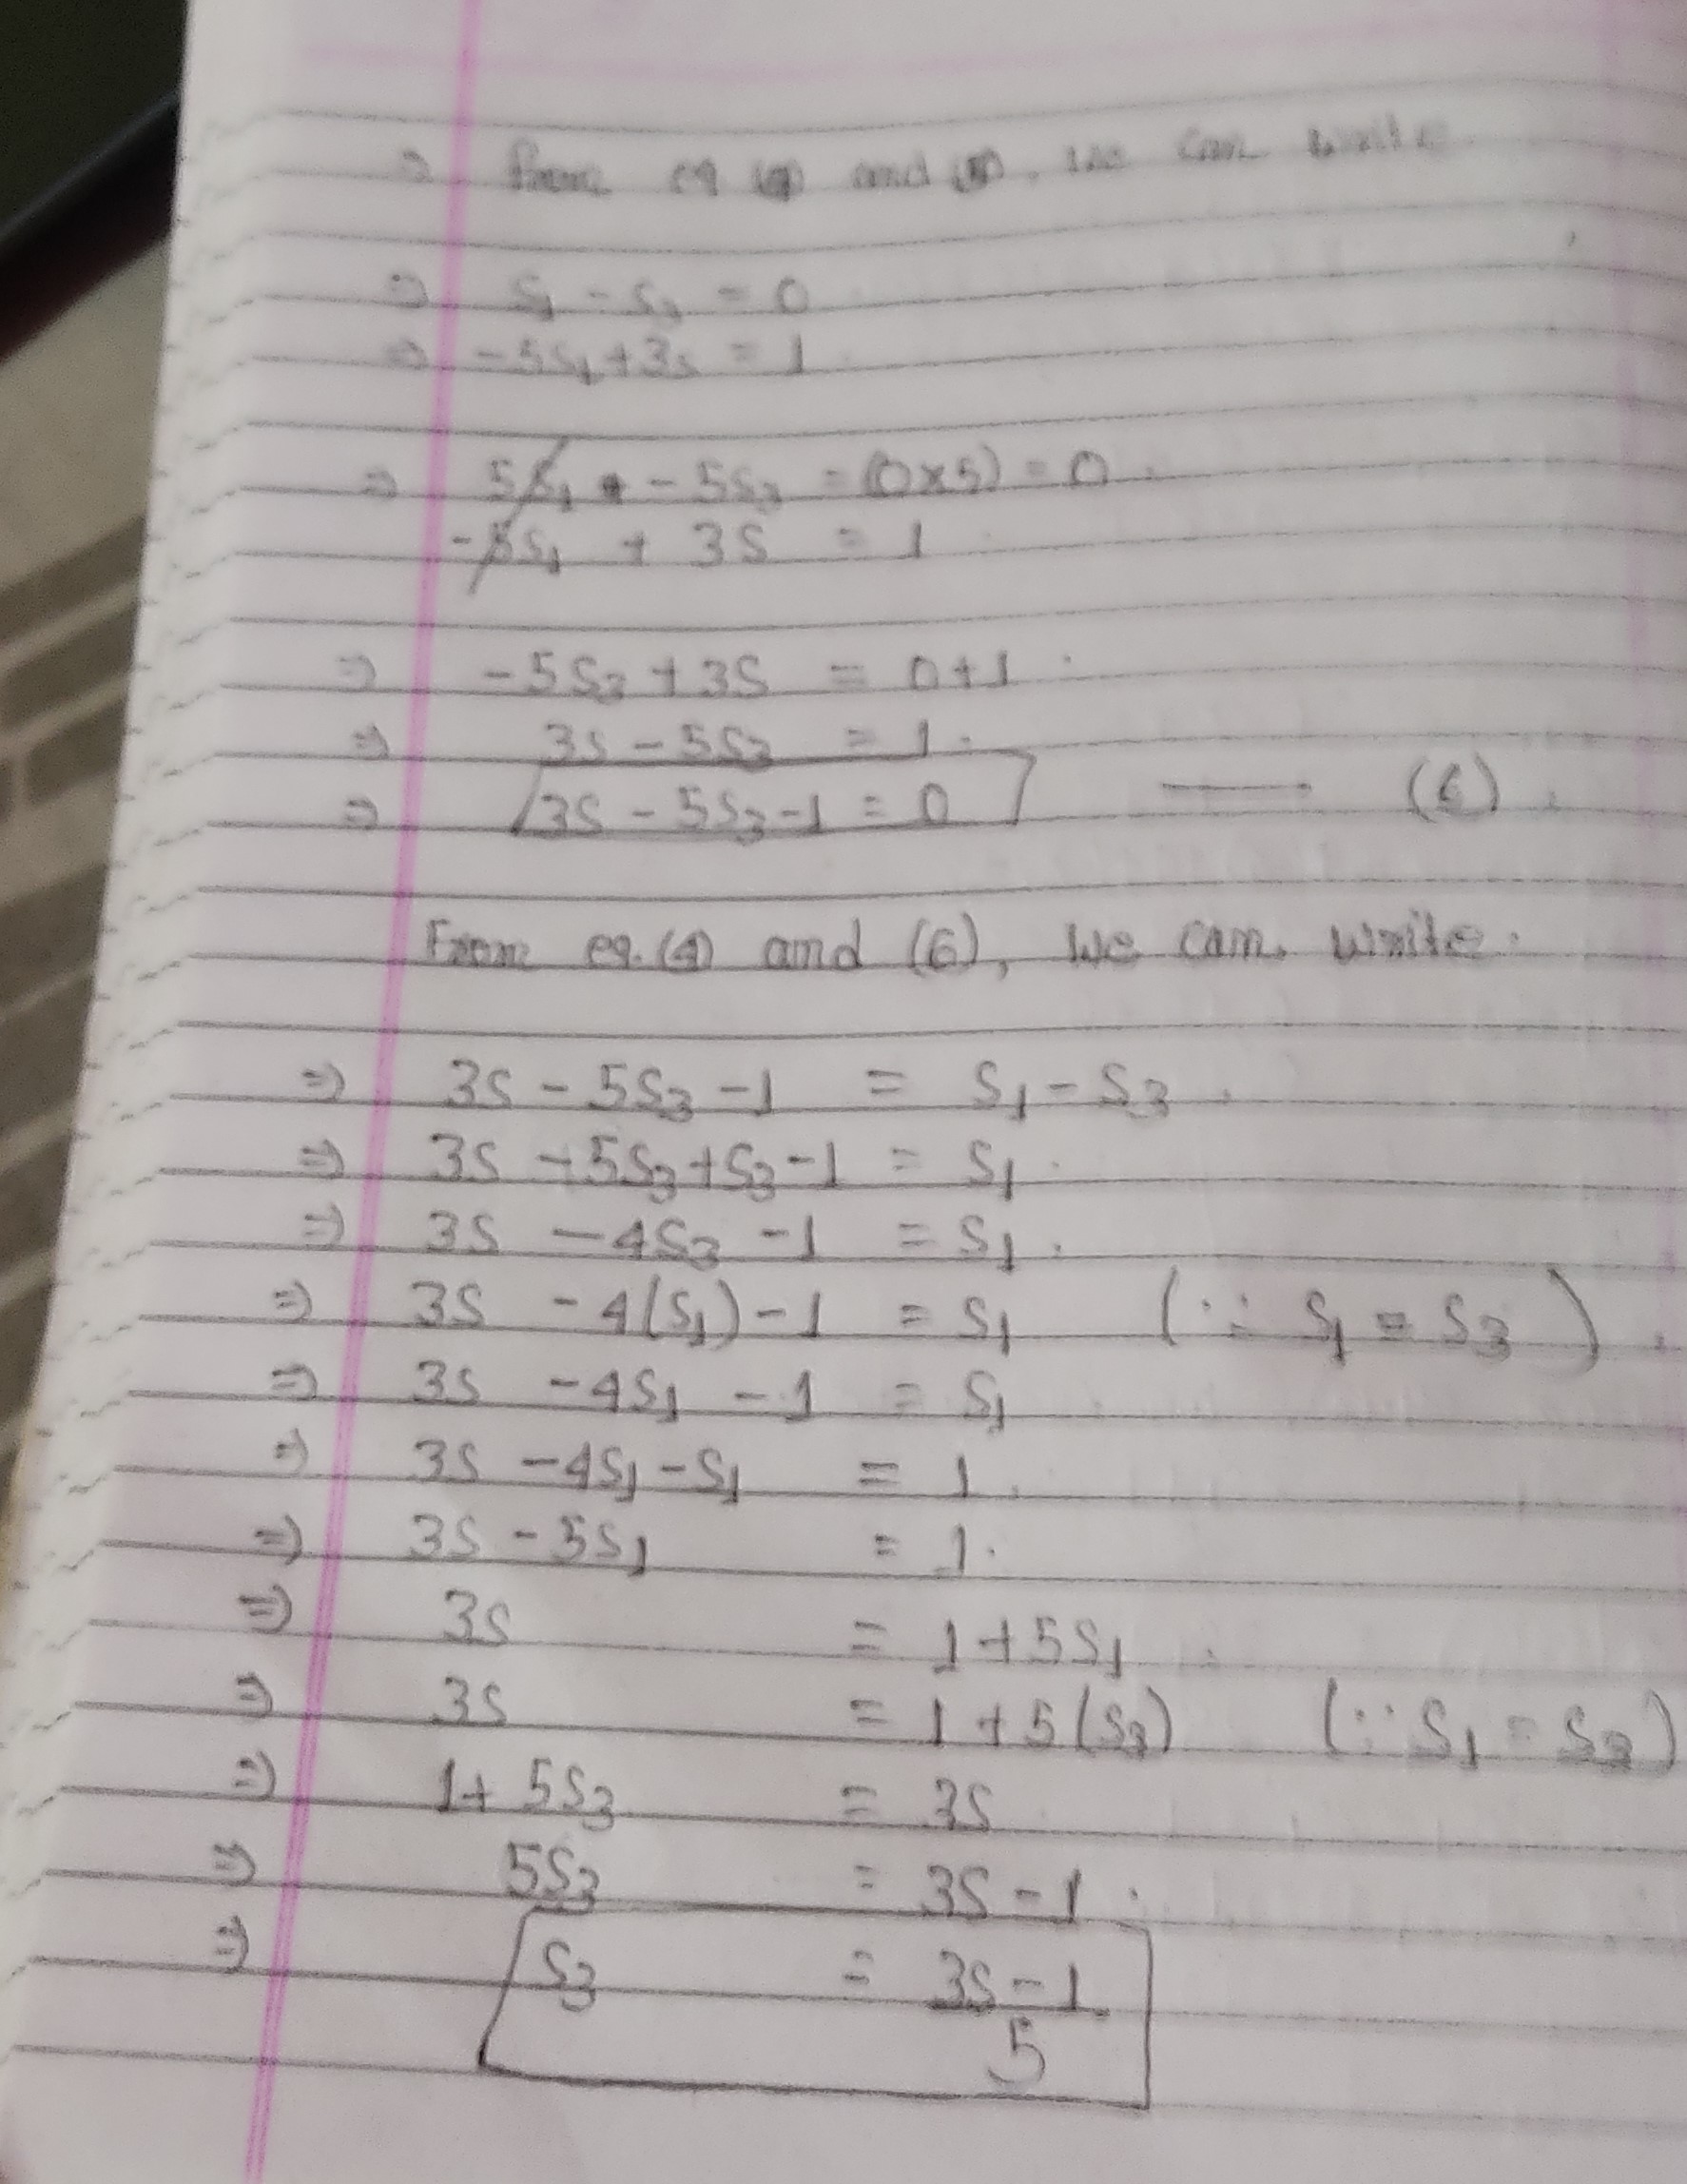 ⇒ From eq (4) and (5), we can write
⇒ S₁ - S₃ = 0
⇒ -5S₁ + 3S = 1
⇒ 5S₁ - 5S₃ = (0×5) = 0
-5S₁ + 3S = 1
⇒ -5S₃ + 3S = 0+1
⇒ 3S - 5S₃ = 1.
⇒ 3S - 5S₃ - 1 = 0 —— (6).
From eq. (4) and (6), we can write.
⇒ 3S - 5S₃ - 1 = S₁ - S₃.
⇒ 3S - 5S₃ + S₃ - 1 = S₁.
⇒ 3S - 4S₃ - 1 = S₁.
⇒ 3S - 4(S₁) - 1 = S₁ (∵ S₁ = S₃).
⇒ 3S - 4S₁ - 1 = S₁
⇒ 3S - 4S₁ - S₁ = 1.
⇒ 3S - 5S₁ = 1.
⇒ 3S = 1 + 5S₁.
⇒ 3S = 1 + 5(S₃) (∵ S₁ = S₃)
⇒ 1 + 5S₃ = 3S
⇒ 5S₃ = 3S - 1.
⇒ S₃ = 3S - 1
5